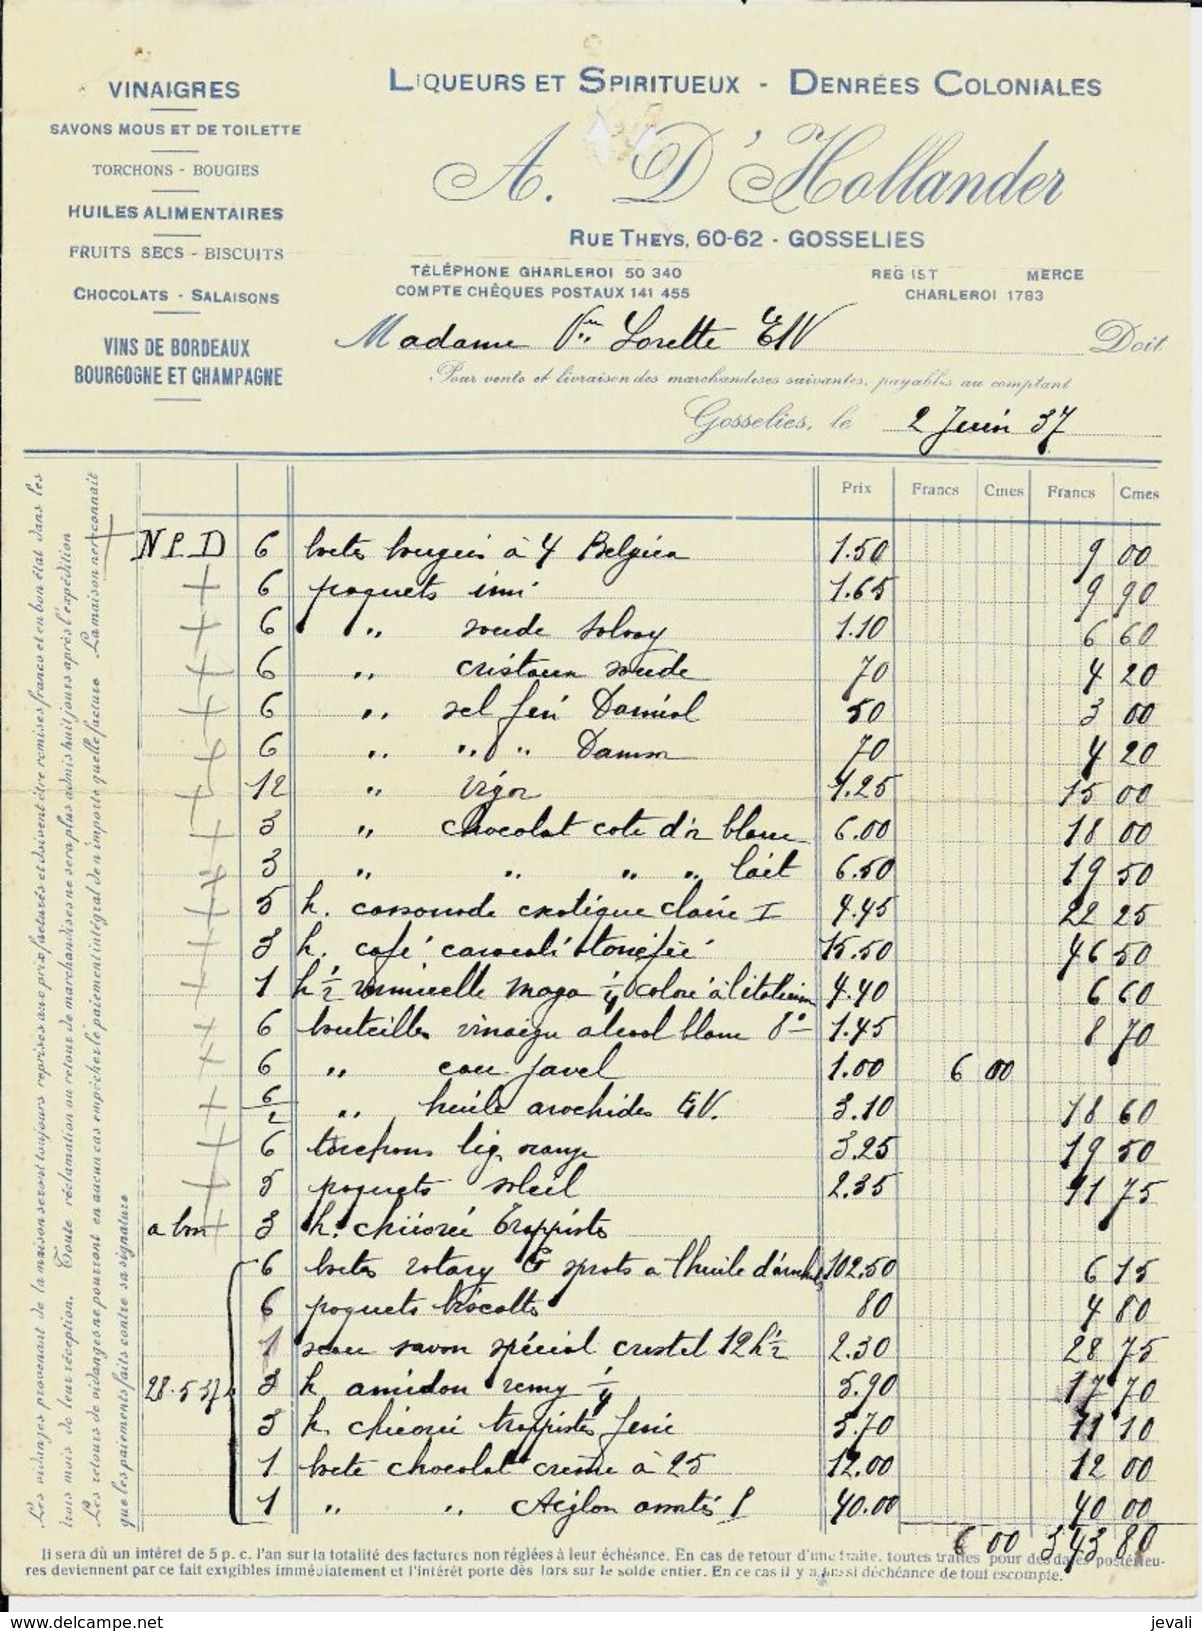 VINAIGRES
SAVONS MOUS ET DE TOILETTE
TORCHONS - BOUGIES
HUILES ALIMENTAIRES
FRUITS SECS - BISCUITS
CHOCOLATS - SALAISONS
VINS DE BORDEAUX
BOURGOGNE ET CHAMPAGNE
LIQUEURS ET SPIRITUEUX - DENRÉES COLONIALES
A. D'Hollander
RUE THEYS, 60-62 - GOSSELIES
TÉLÉPHONE CHARLEROI 50 340
COMPTE CHÈQUES POSTAUX 141 455
REG IST MERCE
CHARLEROI 1783
Madame Vve Lorette E/V Doit
Pour vente et livraison des marchandises suivantes, payables au comptant
Gosselies, le 2 Juin 37
Prix Francs Cmes Francs Cmes
N P D 6 boites bougies à 4 Belgica 1.50 9 00
+ 6 paquets imi 1.65 9 90
+ 6 " soude Solvay 1.10 6 60
+ 6 " cristaux soude 70 4 20
+ 6 " sel fin 50 3 00
+ 6 " " " 70 4 20
+ 12 " Vigor 1.25 15 00
+ 3 " chocolat cote d'or blanc 6.00 18 00
+ 3 " " " " lait 6.50 19 50
+ 5 k. cassonade exotique claire I 4.45 22 25
+ 3 k. café torréfié 15.50 46 50
+ 1 k 1/2 vermicelle 1/4 coloré à l'italienne 4.40 6 60
+ 6 bouteilles vinaigre alcool blanc 8° 1.45 8 70
+ 6 " eau Javel 1.00 6 00
+ 6/2 " huile arachides E.V. 3.10 18 60
+ 6 torchons lig. orange 3.25 19 50
+ 5 paquets soleil 2.35 11 75
a bon + 3 k. chicorée Trappistes
6 boites rotary sprats a l'huile d'arachides 102.50 6 15
6 paquets biscottes 80 4 80
1 seau savon spécial cristal 12 k 1/2 2.30 28 75
28-5-37 3 k. amidon remy 1/4 5.90 17 70
3 k. chicorée trappistes 3.70 11 10
1 boite chocolat crème à 25 12.00 12 00
1 " " Aiglon 40.00 40 00
6 00 343 80
Les vidanges provenant de la maison seront toujours reprises aux prix facturés et doivent être remises franco et en bon état dans les
trois mois de leur réception. Toute réclamation ou retour de marchandises ne sera plus admis huit jours après l'expédition
Les retours de vidanges ne pourront en aucun cas empêcher le paiement intégral de n'importe quelle facture. La maison ne reconnait
que les paiements faits contre sa signature
Il sera dû un intéret de 5 p. c. l'an sur la totalité des factures non réglées à leur échéance. En cas de retour d'une traite, toutes traites pour des dates postérieu-
res deviennent par ce fait exigibles immédiatement et l'intérêt porte dès lors sur le solde entier. En ce cas il y a aussi déchéance de tout escompte.
www.delcampe.net
jevali